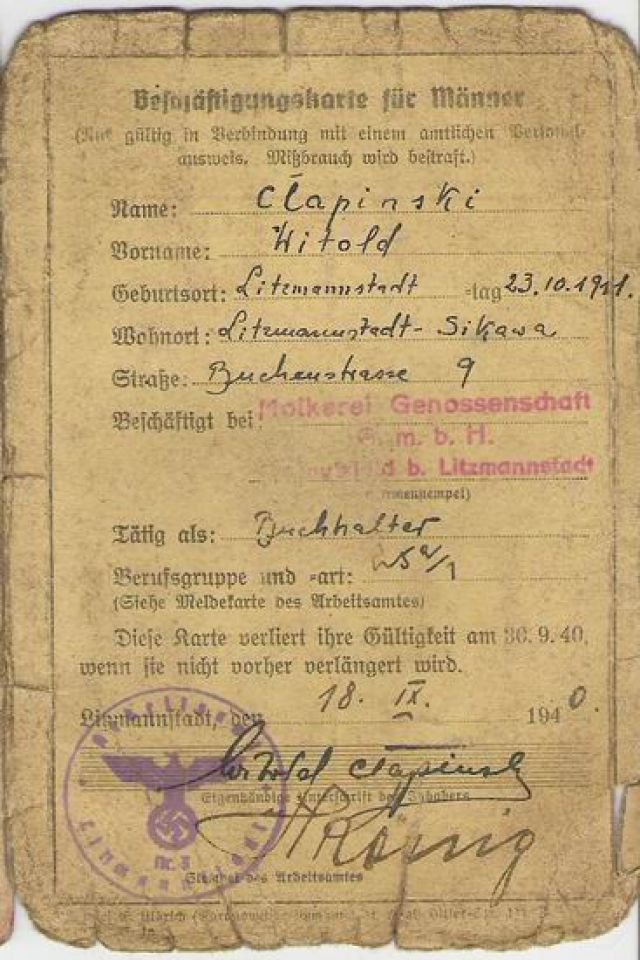 Beschäftigungskarte für Männer
(Nur gültig in Verbindung mit einem amtlichen Personal-
ausweis. Mißbrauch wird bestraft.)
Name: Cłapinski
Vorname: Witold
Geburtsort: Litzmannstadt -tag 23.10.1911.
Wohnort: Litzmannstadt-Sikawa
Straße: Buchenstrasse 9
Beschäftigt bei: Molkerei Genossenschaft
G. m. b. H.
b. Litzmannstadt
(Firmenstempel)
Tätig als: Buchhalter
Berufsgruppe und -art:
(Siehe Meldekarte des Arbeitsamtes)
Diese Karte verliert ihre Gültigkeit am 30.9.40,
wenn sie nicht vorher verlängert wird.
Litzmannstadt, den 18. IX. 1940.
Witold Cłapinski
Eigenhändige Unterschrift des Inhabers
Nr. 3
Litzmannstadt
Stempel des Arbeitsamtes